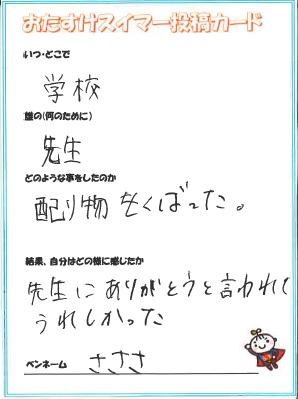 おたすけスイマー投稿カード
いつ・どこで
学校
誰の(何のために)
先生
どのような事をしたのか
配り物をくばった。
結果、自分はどの様に感じたか
先生にありがとうと言われて
うれしかった
ペンネーム ささささ